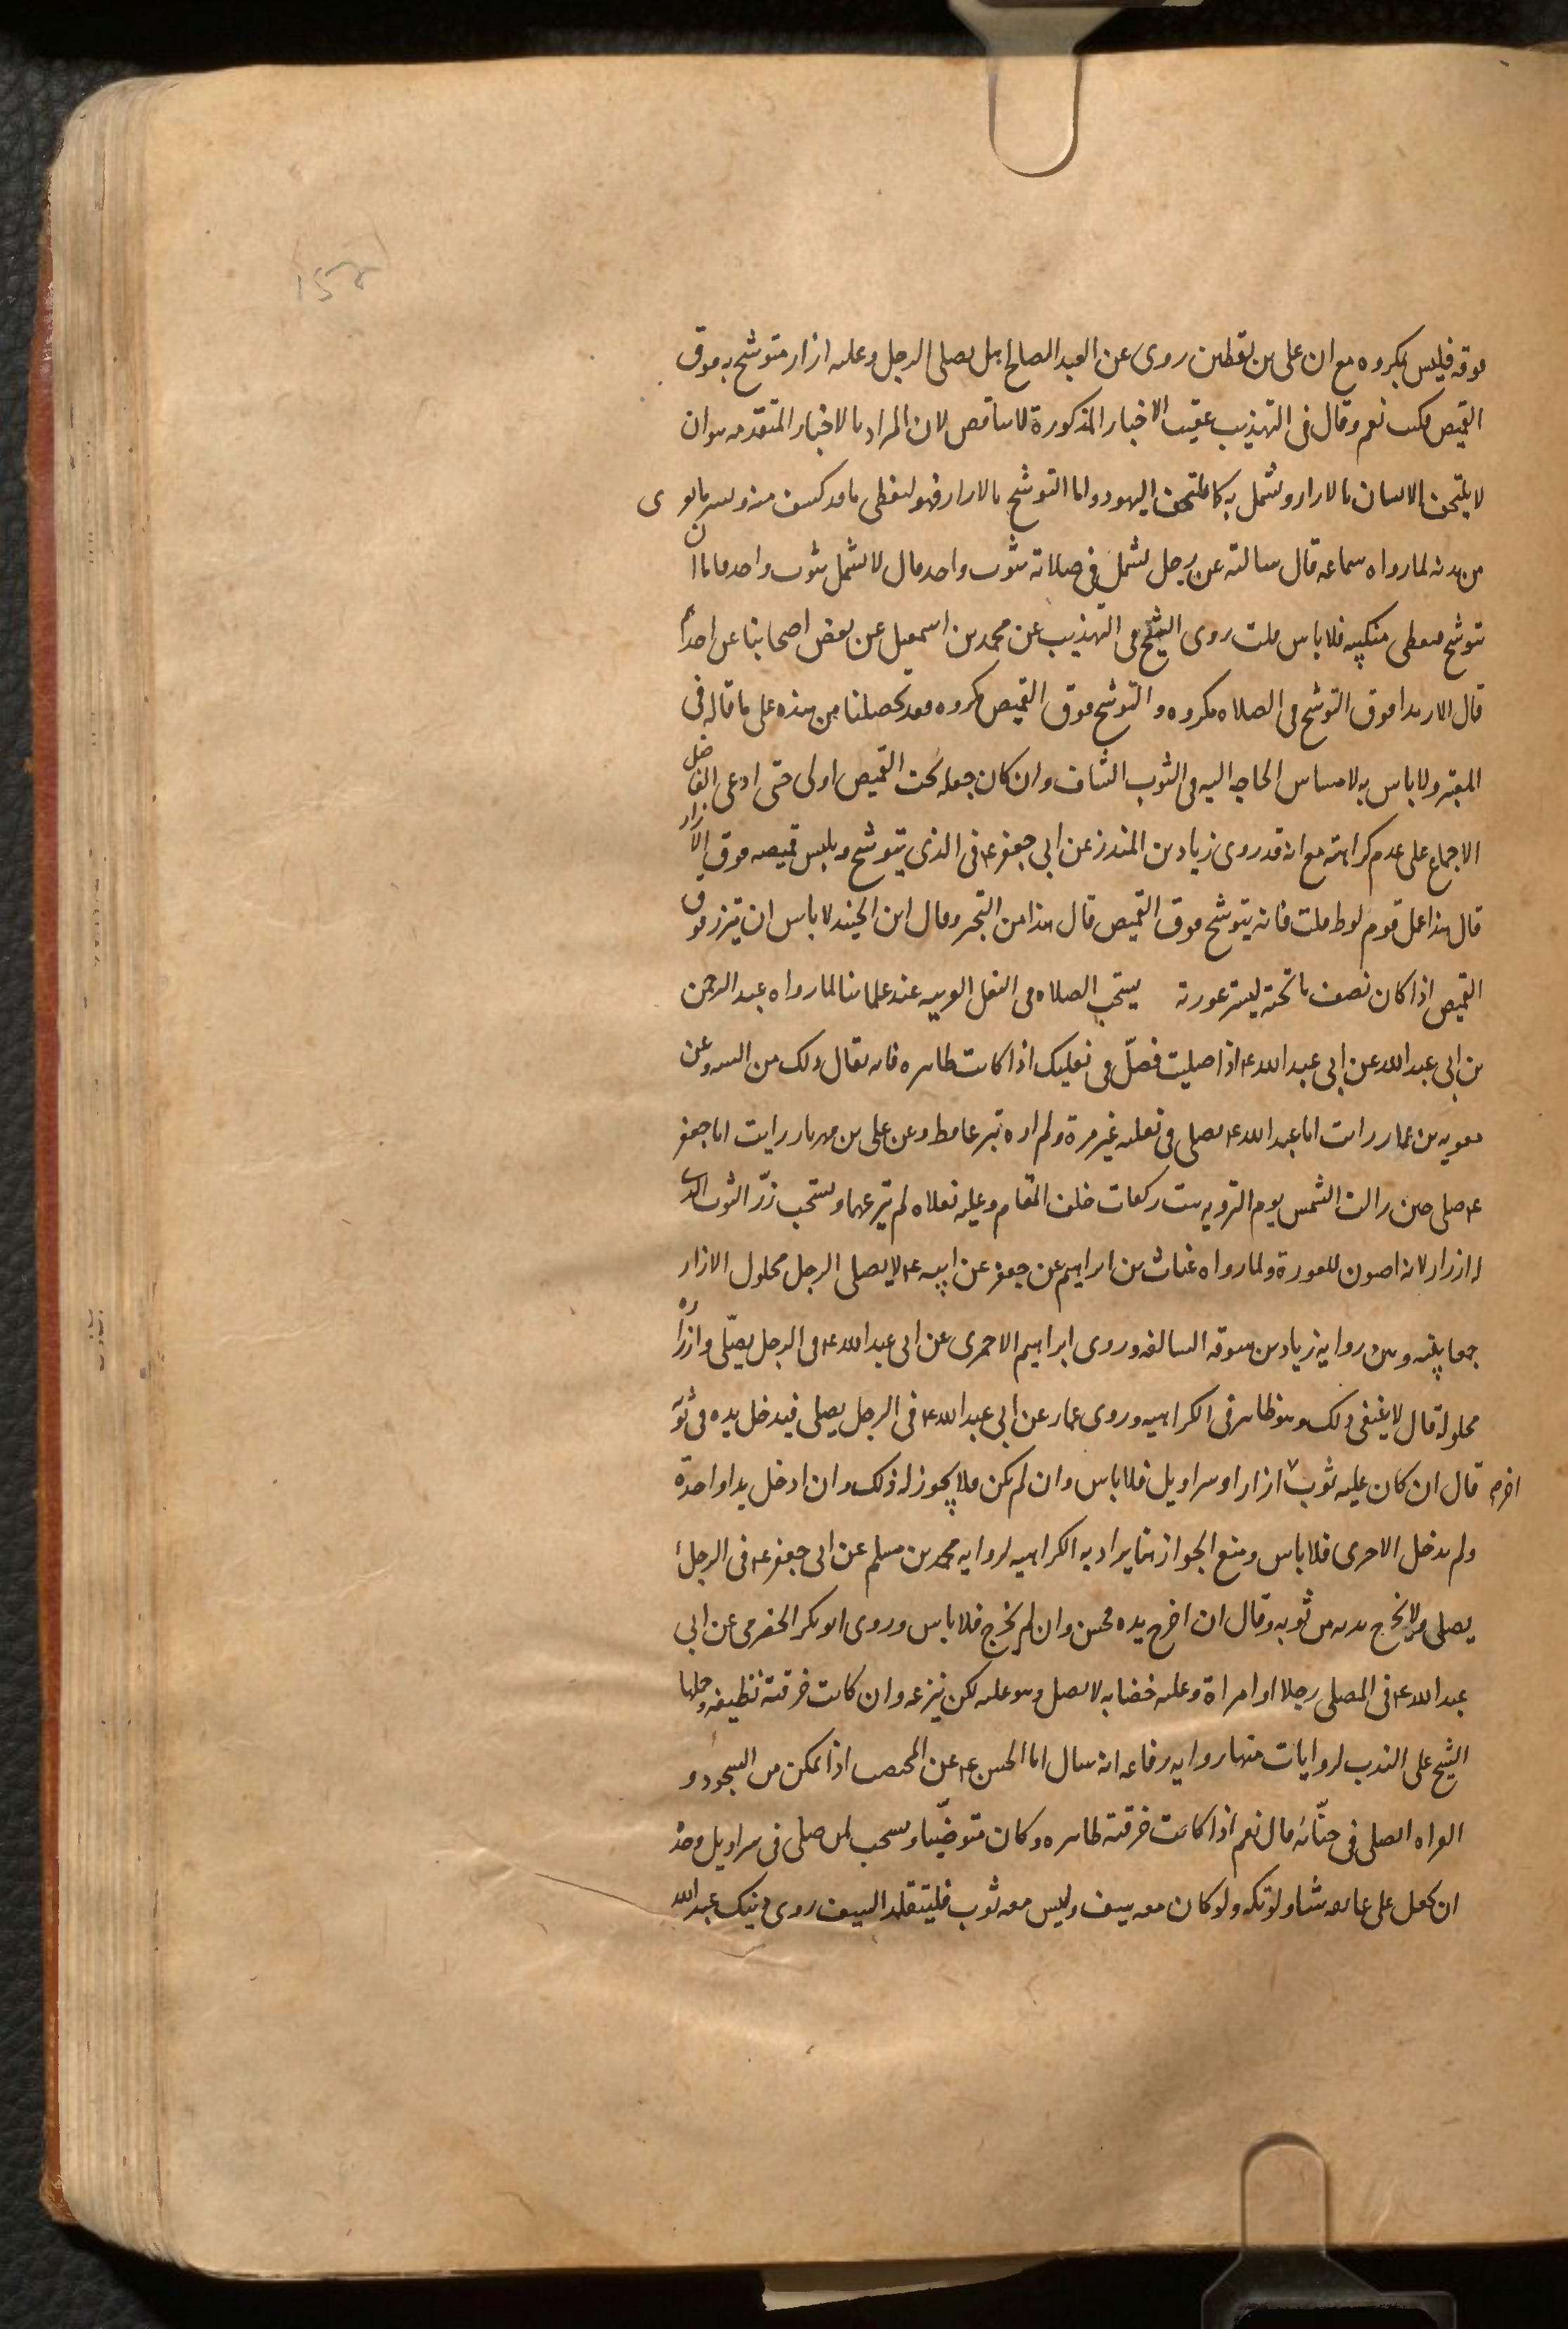 فوقه فليس بمكروه مع ان على بن يقطين روى عن العبد الصالح ا هل يصلى الرجل وعليه ازار متوشح به فوق
القميص فكتب نعم وقال فى التهذيب عقيب الاخبار المذكورة لا تناقص لان المراد بالاخبار المتقدمه هو ان
لا يلتحف الانسان بالازار ويشمل به كما يلتحف اليهود واما التوشح بالازار فهو ليغطى ما قد كشف منه ويستر ما تعرى
من بدنه لما رواه سماعه قال سالته عن رجل يشمل فى صلاته بثوب واحد قال لا يشمل بثوب واحد فاما ان
يتوشح فيغطى منكبيه فلا باس قلت روى الشيخ فى التهذيب عن محمد بن اسمعيل عن بعض اصحابنا عن احدهم
قال الارتدا فوق التوشح فى الصلاه مكروه و التوشح فوق القميص مكروه فقد تحصلنا من هذه على ما قاله فى
المعتبر ولا باس به لامساس الحاجه اليه فى الثوب الشاف وان كان جعله تحت القميص اولى حتى ادعى الفاضل
الاجماع على عدم كراهته مع انه قد روى زياد بن المنذر عن ابى جعفر ع فى الذى يتوشح ويلبس قميصه فوق الازار
قال هذا عمل قوم لوط قلت فانه يتوشح فوق القميص قال هذا من التجبر وقال ابن الجنيد لا باس ان يتزر فوق
القميص اذا كان نصف ما تحته ليستر عورته يستحب الصلاه فى النعل العربيه عند علمائنا لما رواه عبد الرحمن
بن ابى عبد الله عن ابى عبد الله ع اذا صليت فصلّ فى نعليك اذا كانت طاهره فانه يقال ذلك من السنه وعن
معويه بن عمار رايت ابا عبد الله ع يصلى فى نعليه غير مرة ولم اره ينزعهما قط وعن على بن مهزيار رايت ابا جعفر
ع صلى حين زالت الشمس يوم الترويه ست ركعات خلف المقام وعليه نعلاه لم ينزعهما ويستحب زرّ الثوب الذى
له ازرار لانه اصون للعورة ولما رواه غياث بن ابراهيم عن جعفر عن ابيه ع لا يصلى الرجل محلول الازار
جمعا بينه وبين روايه زياد بن سوقه السالفه وروى ابراهيم الاحمرى عن ابى عبد الله ع فى الرجل يصلّى وازراره
محلولة قال لا ينبغى ذلك وهو ظاهر فى الكراهيه وروى عمار عن ابى عبد الله ع فى الرجل يصلى فيدخل يده فى ثوبه
قال ان كان عليه ثوب ازار او سراويل فلا باس وان لم يكن فلا يجوز له ذلك وان ادخل يدا واحدة
اخر
ولم يدخل الاخرى فلا باس ومنع الجواز انما يراد به الكراهيه لروايه محمد بن مسلم عن ابى جعفر ع فى الرجل
يصلى ولا يخرج يديه من ثوبه وقال ان اخرج يده فحسن وان لم يخرج فلا باس وروى ابو بكر الحضرمى عن ابى
عبد الله ع فى المصلى رجلا او امراة وعليه خضابه لا يصل وهو عليه لكن ينزعه وان كانت خرقته نظيفه وحملها
الشيخ على الندب لروايات منها روايه رفاعه انه سال ابا الحسن ع عن المختضب اذا تمكن من السجود و
القراه ايصلى فى حنّائه قال نعم اذا كانت خرقته طاهره وكان متوضّيا ويستحب لمن صلى فى سراويل وحده
ان يجعل على عاتقه شيا ولو تكه ولو كان معه سيف وليس معه ثوب فليتقلد السيف روى ذينك عبد الله